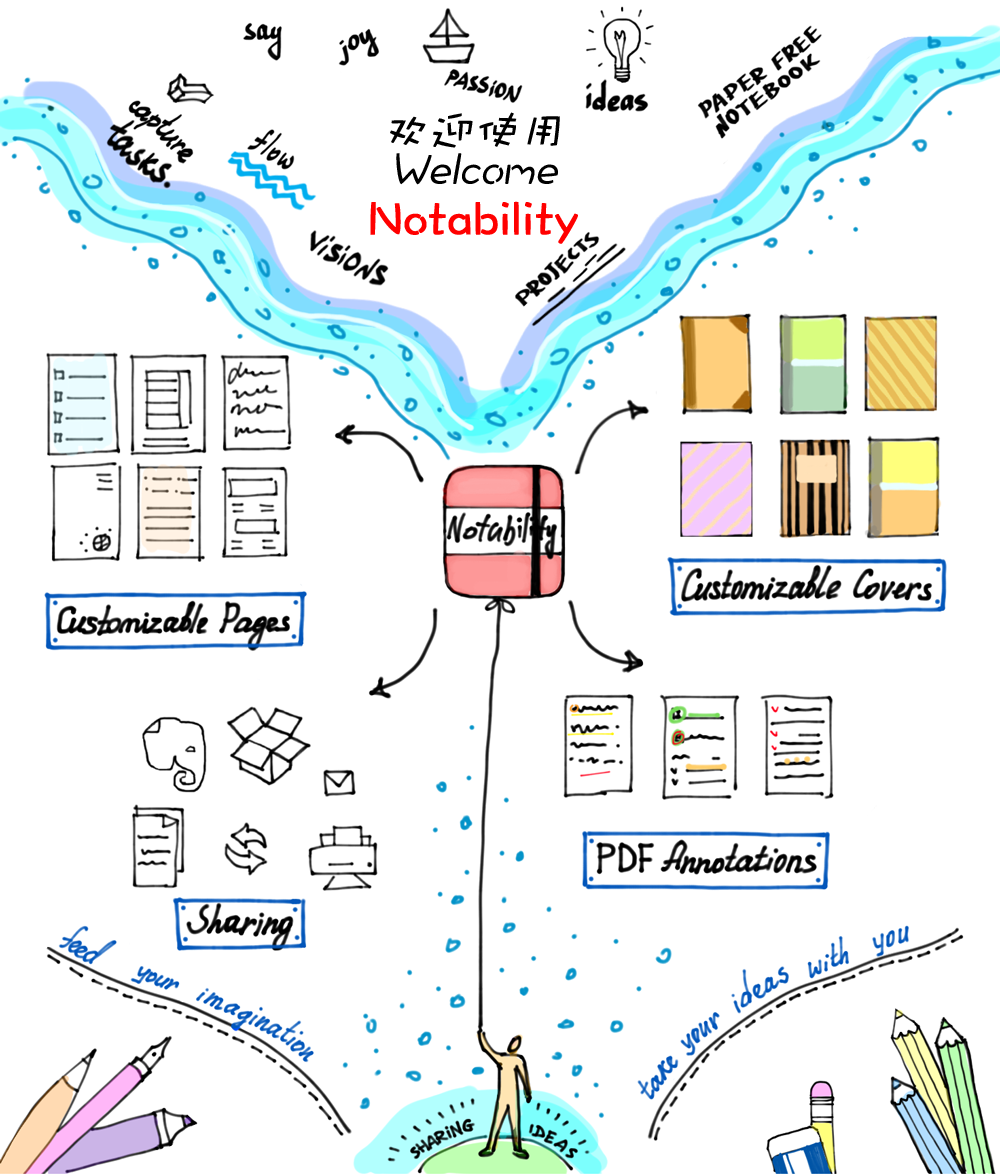 say
joy
PASSION
ideas
PAPER FREE
NOTEBOOK
capture
tasks.
flow
欢迎使用
Welcome
Notability
VISIONS
PROJECTS
Notability
Customizable Pages
Customizable Covers
PDF Annotations
Sharing
feed your imagination
take your ideas with you
SHARING IDEAS